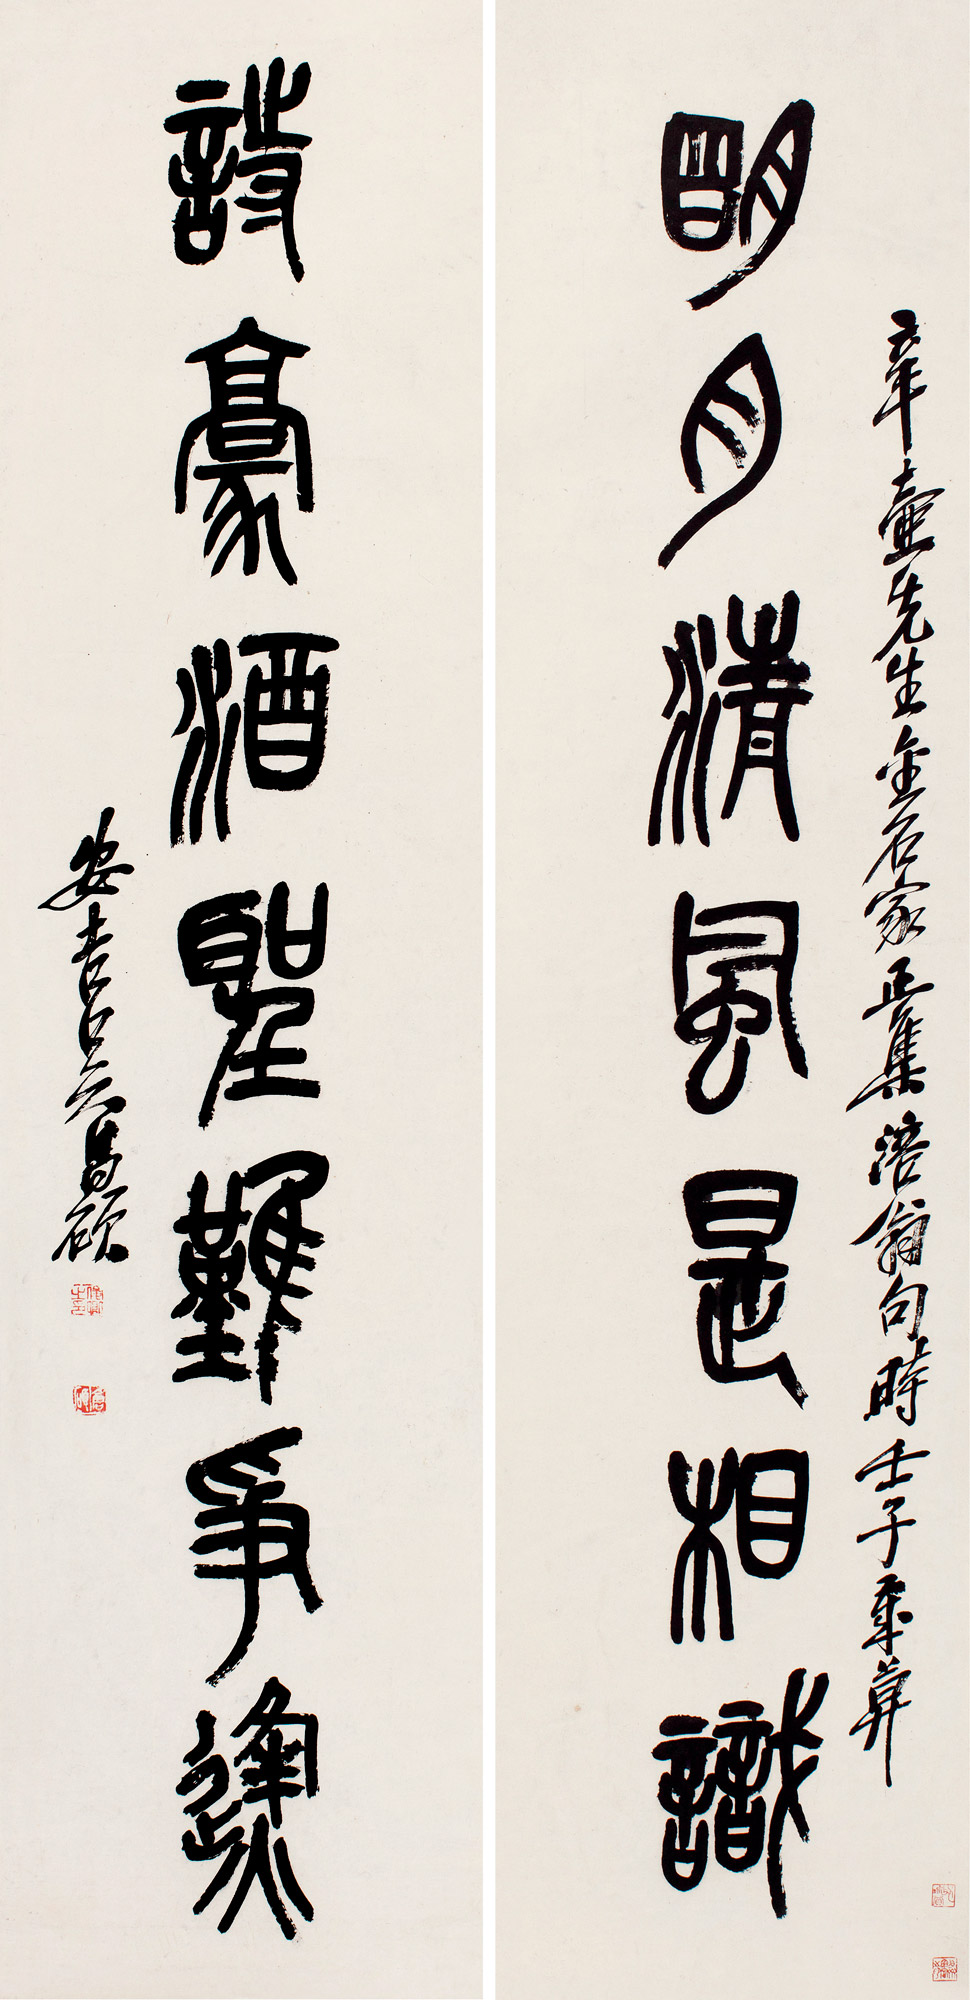 明月清風是相識
辛壺先生金石家正集涪翁句時壬子年算
詩豪酒聖難爭逢
安吉吳昌碩